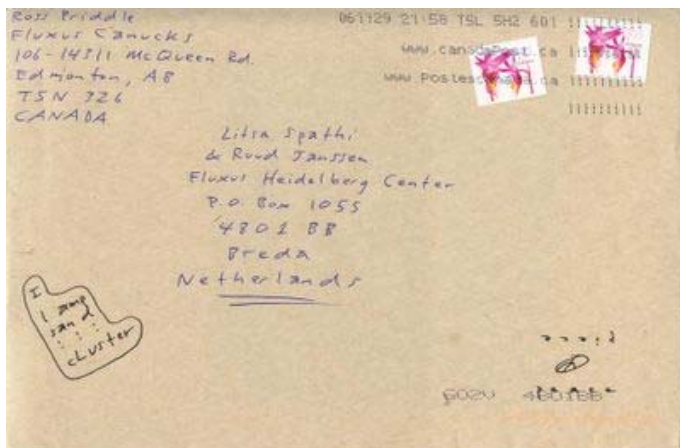 Ross Priddle
Fluxus Canucks
106-14311 McQueen Rd.
Edmonton, AB
T5N 3Z6
CANADA
061129 21:58 T5L 5H2 601
www.canadapost.ca
www.postescanada.ca
Litsa Spathi
& Ruud Janssen
Fluxus Heidelberg Center
P.O. Box 1055
4801 BB
Breda
Netherlands
I
sand
cluster
piece
4801BB